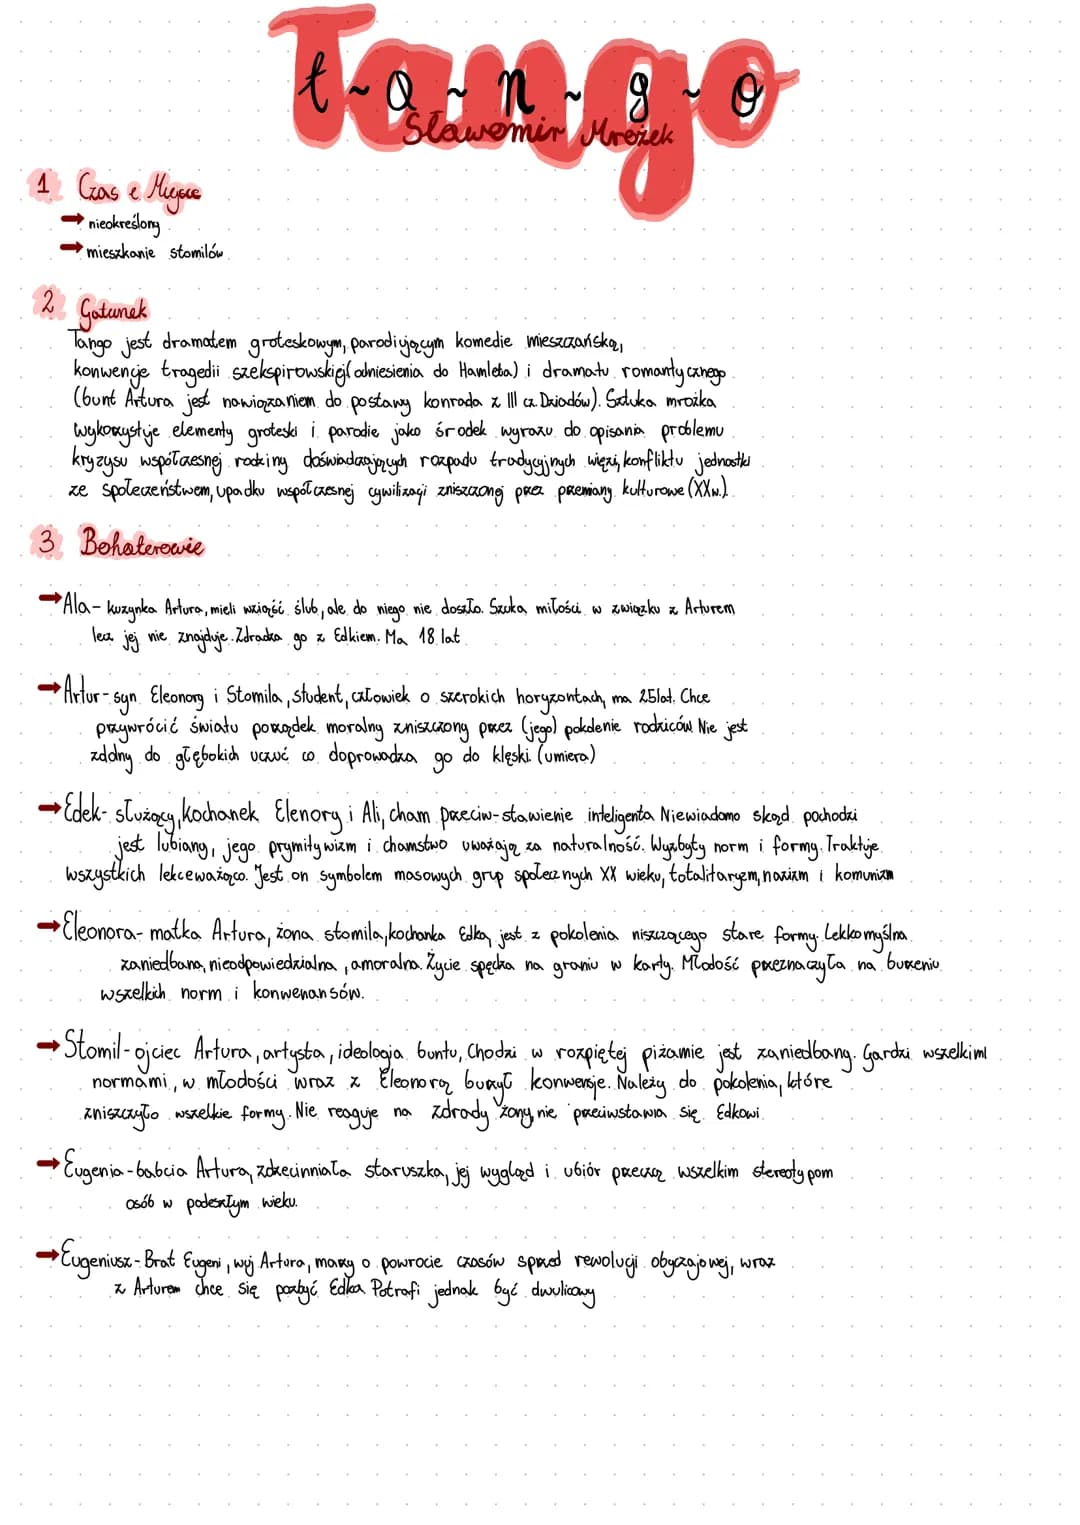 Tango
t~a~n~g~o
Sławomir Mrożek
1 Czas i Miejsce
→ nieokreślony
→ mieszkanie stomilów
2 Gatunek
Tango jest dramatem groteskowym, parodiującym komedie mieszczańską,
konwencje tragedii szekspirowskiej (odniesienia do Hamleta) i dramatu romantycznego
(bunt Artura jest nawiązaniem do postawy konrada z III cz. Dziadów). Sztuka mrożka
wykorzystuje elementy groteski i parodie jako środek wyrazu do opisania problemu
kryzysu współczesnej rodziny doświadczających rozpadu tradycyjnych więzi, konfliktu jednostki
ze społeczeństwem, upadku współczesnej cywilizacji zniszczonej przez przemiany kulturowe (XXw.).
3 Bohaterowie
→ Ala - kuzynka Artura, mieli wziąść ślub, ale do niego nie doszło. Szuka miłości w związku z Arturem
lecz jej nie znajduje. Zdradza go z Edkiem. Ma 18 lat
→ Artur - syn Eleonory i Stomila, student, człowiek o szerokich horyzontach, ma 25lat. Chce
przywrócić światu porządek moralny zniszczony przez (jego) pokolenie rodziców Nie jest
zdolny do głębokich uczuć co doprowadza go do klęski. (umiera)
→ Edek - służący, kochanek Elenory i Ali, cham przeciw-stawienie inteligenta Niewiadomo skąd pochodzi
jest lubiany, jego prymitywizm i chamstwo uważają za naturalność. Wyzbyty norm i formy. Traktuje
wszystkich lekceważąco. Jest on symbolem masowych grup społecznych XX wieku, totalitaryzm, nazizm i komunizm
→ Eleonora - matka Artura, żona stomila, kochanka Edka, jest z pokolenia niszczącego stare formy. Lekkomyślna
zaniedbana, nieodpowiedzialna, amoralna. Życie spędza na graniu w karty. Młodość przeznaczyła na burzeniu
wszelkich norm i konwenansów.
→ Stomil - ojciec Artura, artysta, ideologia buntu, Chodzi w rozpiętej piżamie jest zaniedbany. Gardzi wszelkimi
normami, w młodości wraz z Eleonorą burzył konwencje. Należy do pokolenia, które
zniszczyło wszelkie formy. Nie reaguje na zdrady żony, nie przeciwstawia się Edkowi
→ Eugenia - babcia Artura, zdziecinniała staruszka, jej wygląd i ubiór przeczą wszelkim stereotypom
osób w podeszłym wieku.
→ Eugeniusz - Brat Eugeni, wuj Artura, marzy o powrocie czasów sprzed rewolucji obyczajowej, wraz
z Arturem chce się pozbyć Edka Potrafi jednak być dwulicowy